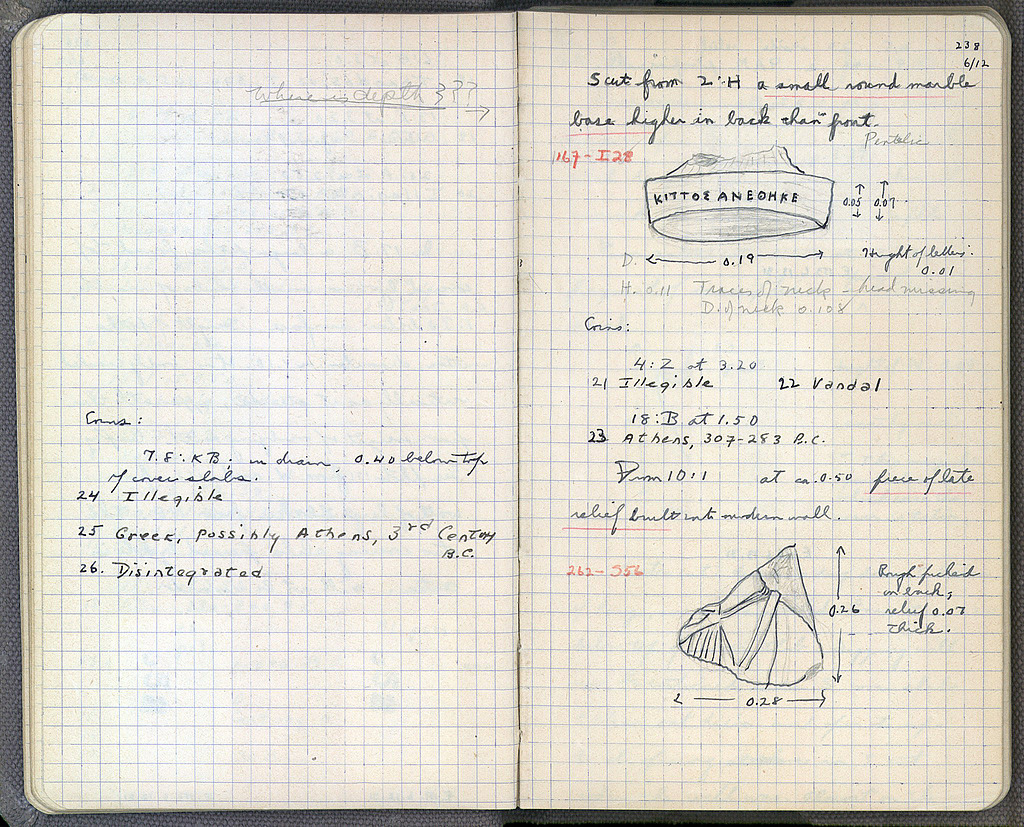 Where is depth ???
Coins:
7.8:KB: in drain, 0.40 below top
of cover slabs.
24 Illegible
25 Greek, possibly Athens, 3rd Century
B.C.
26. Disintegrated
238
6/12
5 cut from 2:H a small round marble
base higher in back than front.
Pentelic
167-I28
ΚΙΤΤΟΣ ΑΝΕΘΗΚΕ
0.05 0.07
D. 0.19
Height of letters:
0.01
H. 0.11 Traces of neck - head missing
D. of neck 0.108
Coins:
4:Z at 3.20
21 Illegible 22 Vandal
18:B at 1.50
23 Athens, 307-283 B.C.
From 10:1 at ca. 0.50 piece of late
relief built into modern wall.
262-S56
Rough picked
on back;
relief 0.07
thick.
0.26
0.28